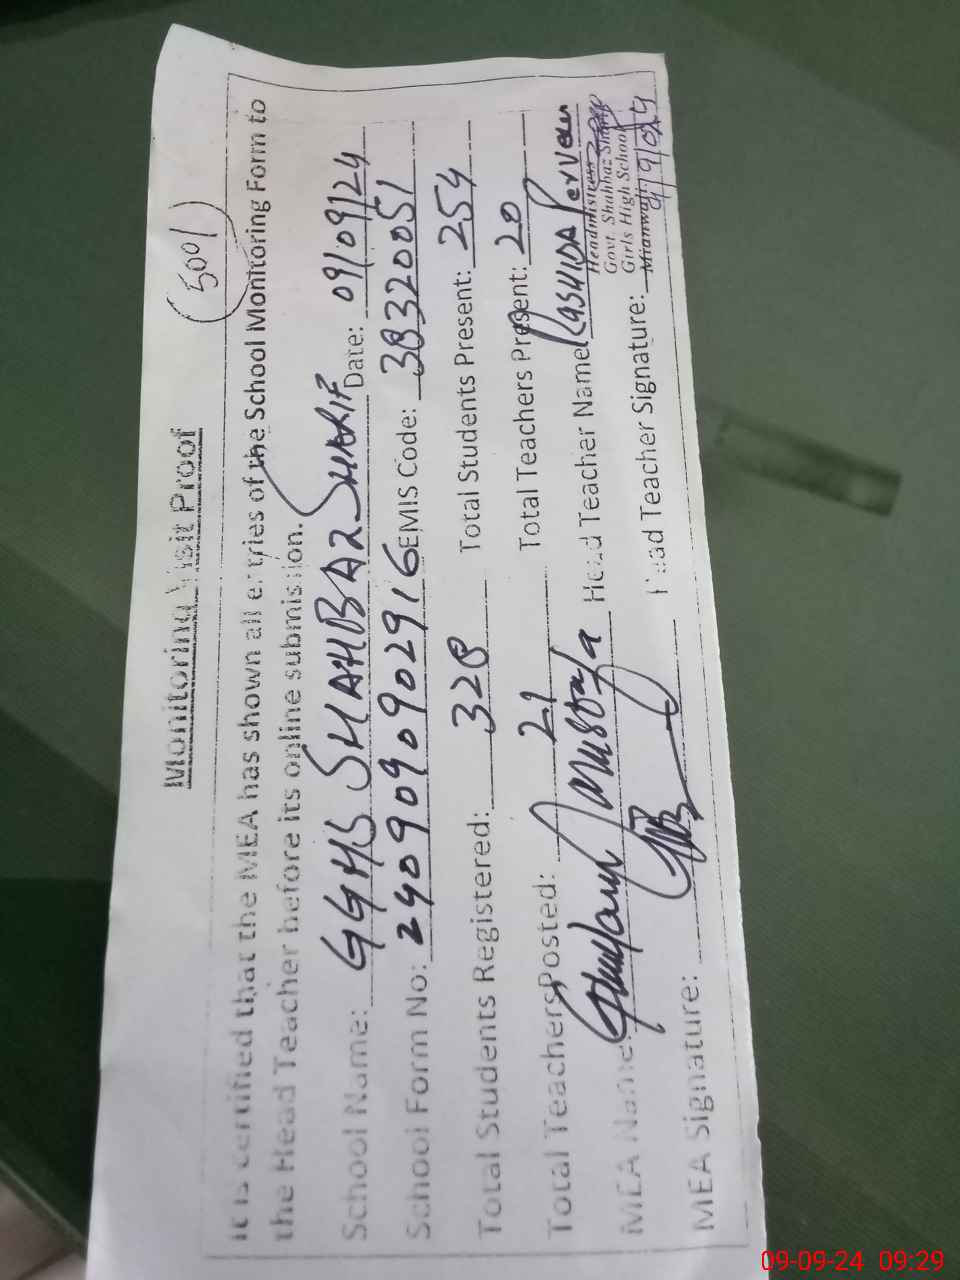 5001
Monitoring Visit Proof
It is certified that the MEA has shown all entries of the School Monitoring Form to
the Head Teacher before its online submission.
School Name: GGHS SHAHBAZ SHARIF Date: 09/09/24
School Form No: 2409090902916 EMIS Code: 38320051
Total Students Registered: 328 Total Students Present: 254
Total Teachers Posted: 21 Total Teachers Present: 20
MEA Name: Ghulam Mustafa Head Teacher Name Rashida Perveen
MEA Signature: Head Teacher Signature:
Headmistress
Govt. Shahbaz Sharif
Girls High School
Mianwali
9/9/024
09-09-24 09:29